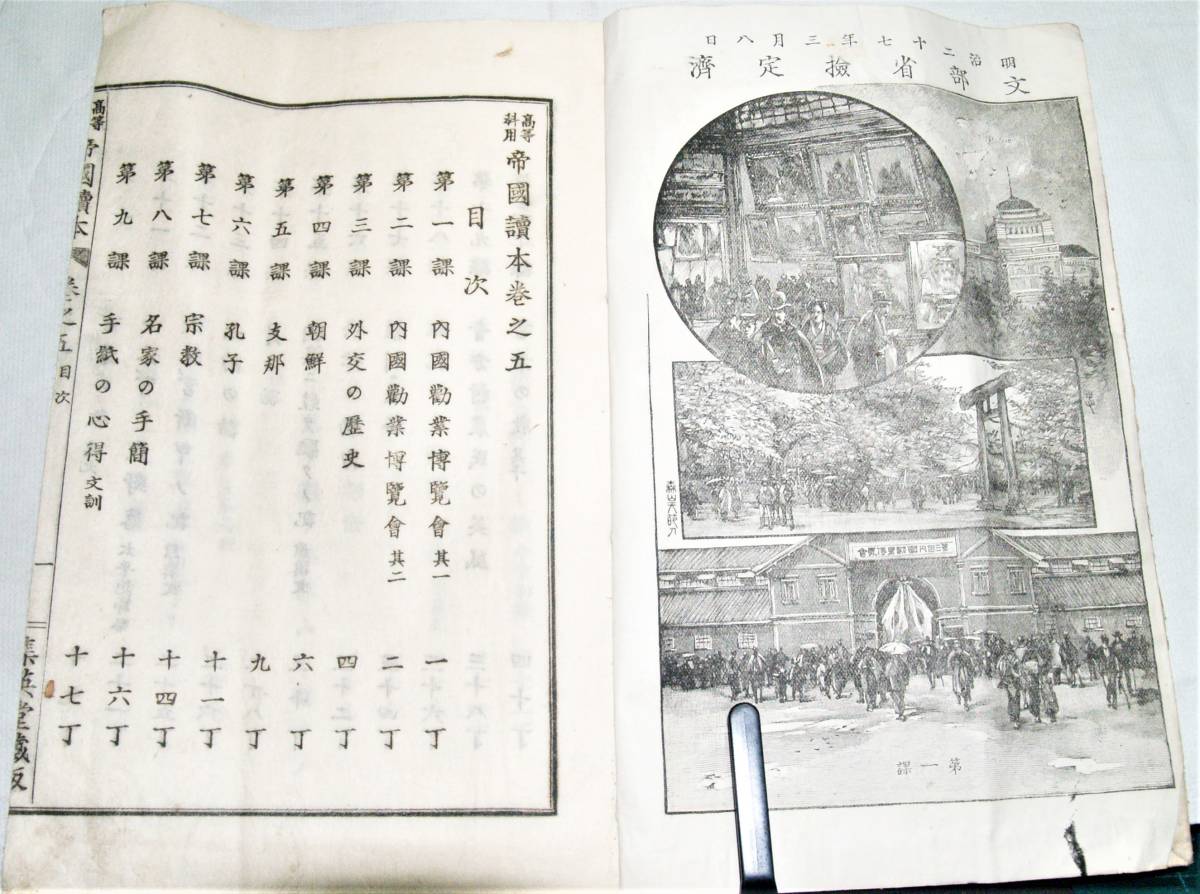 明治二十七年三月八日
文部省検定濟
第三回内國勧業博覧會
第一課
高等科用 帝國讀本卷之五
目次
第一課 內國勸業博覽會其一 一丁
第二課 內國勸業博覽會其二 二丁
第三課 外交の歷史 四丁
第四課 朝鮮 六丁
第五課 支那 九丁
第六課 孔子 十一丁
第七課 宗教 十四丁
第八課 名家の手簡 十六丁
第九課 手紙の心得文訓 十七丁
高等 帝國讀本 卷之五目次 一 集英堂藏版